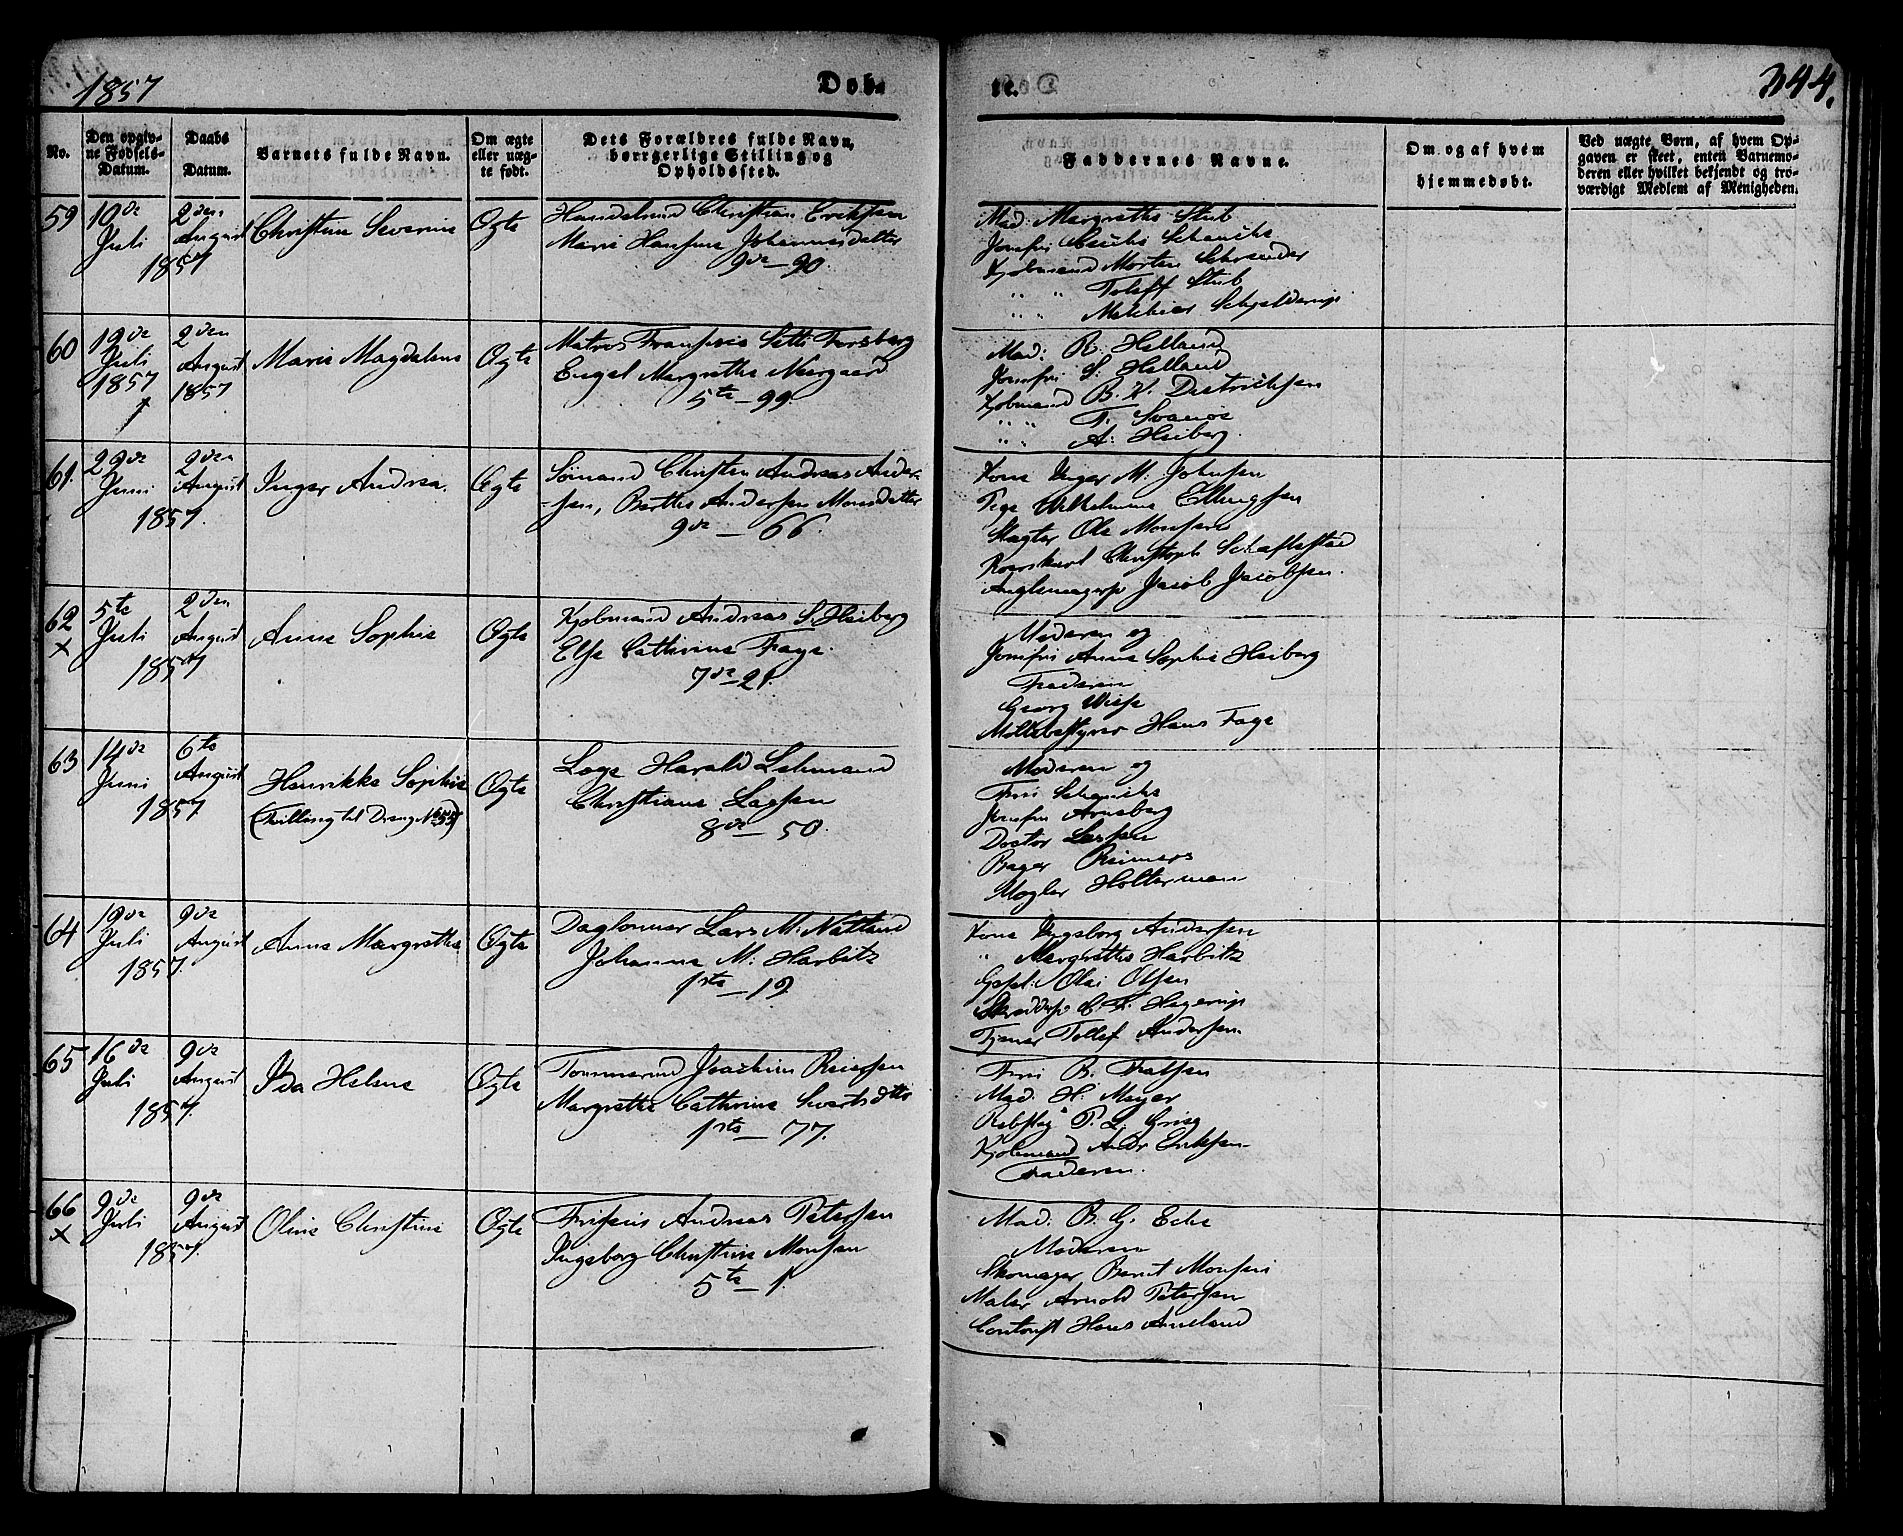 1857
Døb-
te.
344.
No.
Den opgiv-
ne Fødsels-
Datum.
Daabs
Datum.
Barnets fulde Navn.
Om ægte
eller uæg-
te født.
Dets Forældres fulde Navn,
borgerlige Stilling og
Opholdssted.
Faddernes Navne.
Om og af hvem
hjemmedøbt.
Ved uægte Børn, af hvem Op-
gaven er skeet, enten Barnemo-
deren eller hvilket bekjendt og tro-
værdigt Medlem af Menigheden.
59
10de
Juli
1857
2den
August
Christine Severine
Ægte
Handelsmd Christian Eriksen
Marie Hansine Johannesdatter
9de – 90.
Mad: Margrethe Stub
Jomfru
Kjøbmand Morten Schrøuder
" " Toleff Stub
" " Melchior Schjelderup
60
12de
Juli
1857
2den
August
1857
Marie Magdalene
Ægte
Matros
Engel Margrethe Neergaard
5te – 99.
Mad: R. Helland
Jomfru S. Helland
Kjøbmand B. K. Dietrichsen
" " T. Svanøe
" " A. Heiberg.
61.
29de
Juni
1857.
2den
August
Inger Andrea.
Ægte
Sømand Christen Andreas Ander-
sen, Berthe Andersen Monsdatter
9de – 66.
Kone Inger M. Johnsen
Pige Wilhelmine Ellingsen
Slagter Ole Monsen
Christoph
Jacob Jacobsen.
62
x
5te
Juli
1857
2den
August
Anne Sophie
Ægte
Kjøbmand Andreas S. Heiberg
Else Cathrine Faye.
7de – 21.
Moderen og
Jomfru Anne Sophie Heiberg
Faderen
Georg Wiese
Møllebestyrer Hans Faye
63
14de
Juni
1857.
6te
August
Henrikke Sophie
(Tvilling til Dreng No 55)
Ægte
Loge Harald Lehmand
Christiane Lassen
8de – 50.
Moderen og
Fru
Jomfru Arnsberg
Doctor Lassen
Bager Reimers
Mægler Holterman
64
19de
Juli
1857.
9de
August
Anne Margrethe
Ægte
Daglønner Lars M. Natland
Johanne M. Harbitz
1ste – 19.
Kone Ingeborg Andersen
" Margrethe Harbitz
Olai Olsen
C. F. Hagerup
Tjener Tollef Andersen.
65
16de
Juli
1857.
9de
August
Ida Helene
Ægte
Tømmermd Joachim Reiersen
Margrethe Cathrine
1ste – 77.
Fru B.
Mad. H. Meyer
Rebslag P. L. Grieg
Kjøbmand Andr Eriksen
Faderen.
66
x
9de
Juli
1857.
9de
August
Oline Christine
Ægte
Friseur Andreas Petersen
Ingeborg Christine Monsen
5te – 1.
Mad: B. G.
Moderen
Skomager Berent Monsen
Maler Arnold Petersen
Contorist Hans